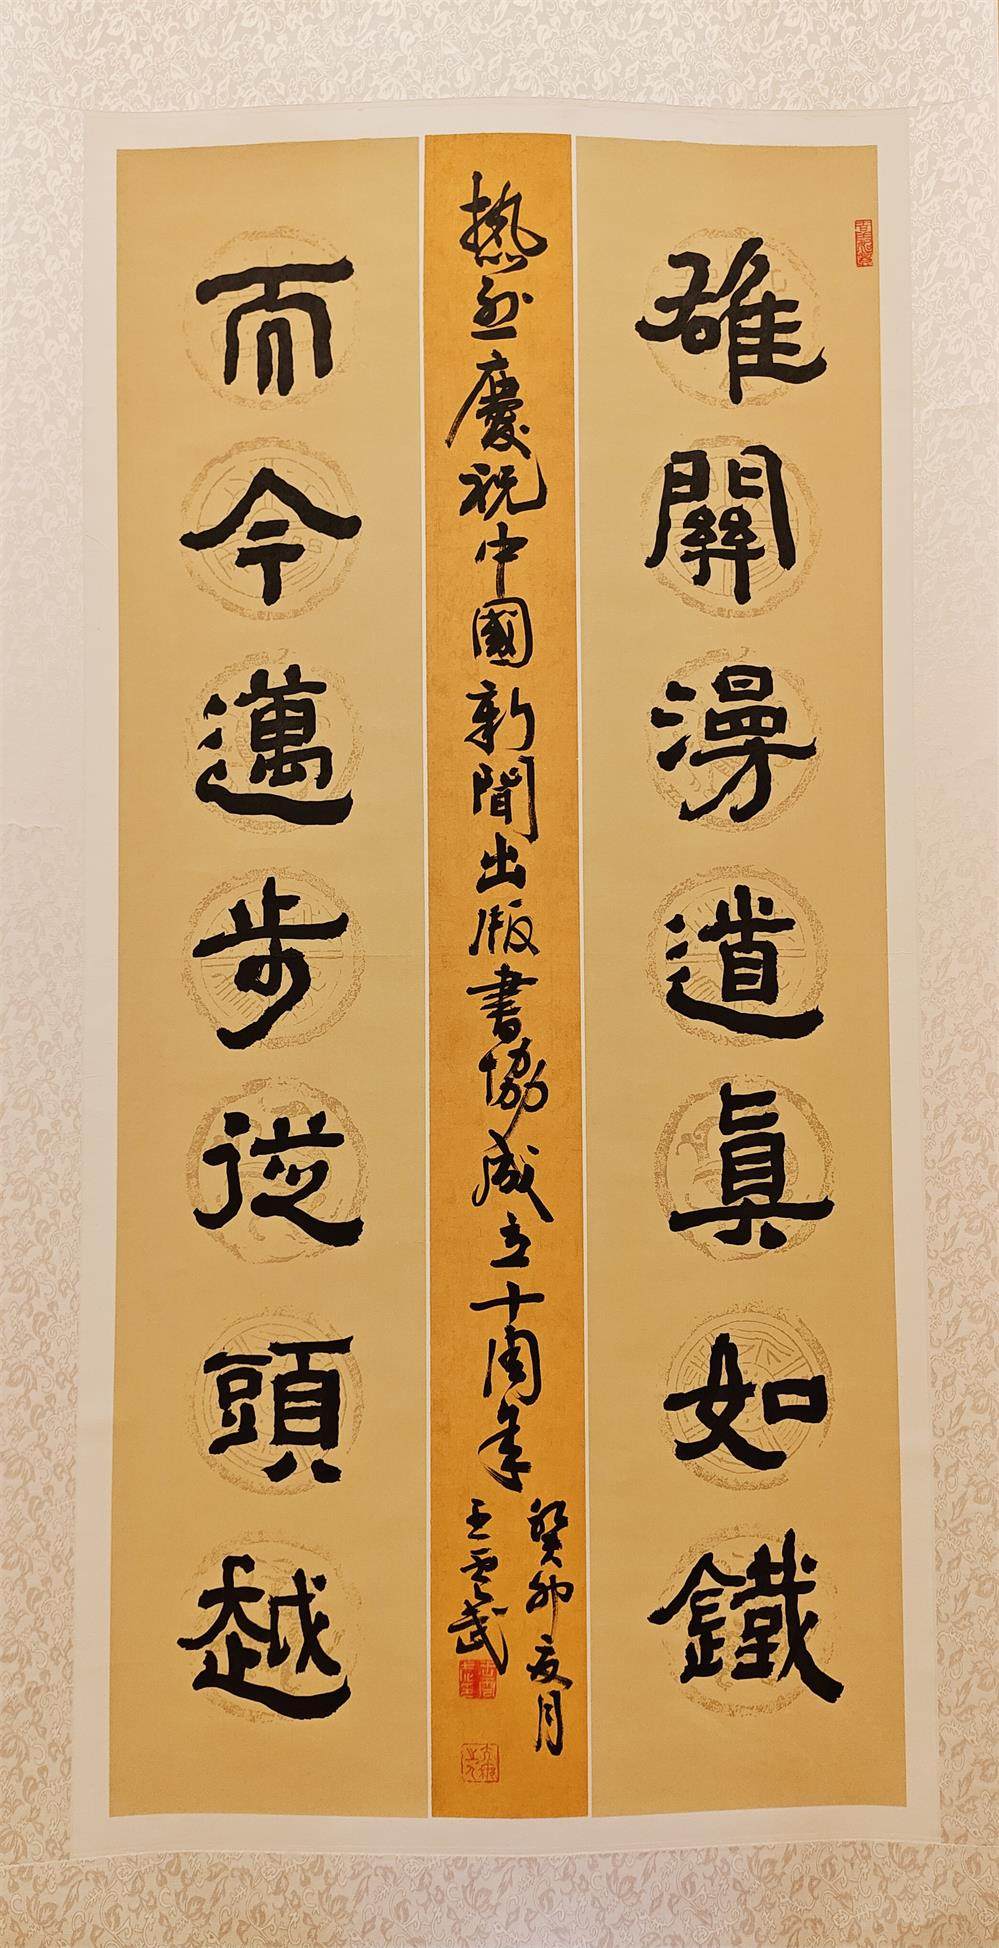 雄關漫道真如鐵
热烈慶祝中國新聞出版書協成立十周年
癸卯夏月
王雲武
而今邁步從頭越